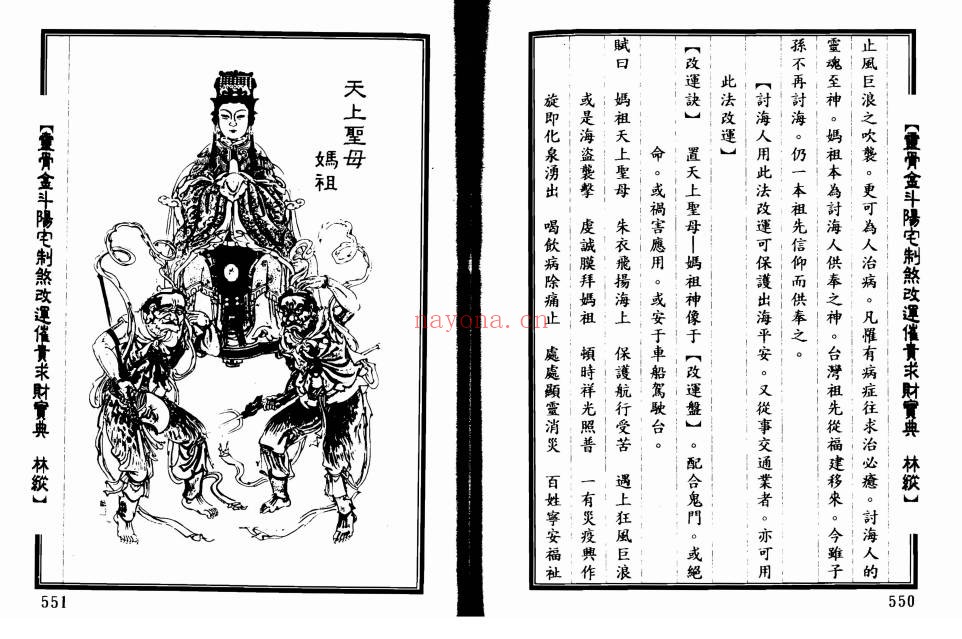 【靈骨金斗陽宅制煞改運催貴求財寶典 林縱】
止風巨浪之吹襲。更可為人治病。凡罹有病症往求治必癒。討海人的
靈魂至神。媽祖本為討海人供奉之神。台灣祖先從福建移來。今雖子
孫不再討海。仍一本祖先信仰而供奉之。
【討海人用此法改運可保護出海平安。又從事交通業者。亦可用
此法改運】
【改運訣】 置天上聖母─媽祖神像于【改運盤】。配合鬼門。或絕
命。或禍害應用。或安于車船駕駛台。
賦曰 媽祖天上聖母 朱衣飛揚海上 保護航行受苦 遇上狂風巨浪
或是海盜襲擊 虔誠膜拜媽祖 頓時祥光照普 一有災疫興作
旋即化泉湧出 喝飲病除痛止 處處顯靈消災 百姓寧安福祉
550
天上聖母
媽祖
【靈骨金斗陽宅制煞改運催貴求財寶典 林縱】
551
nayona.cn